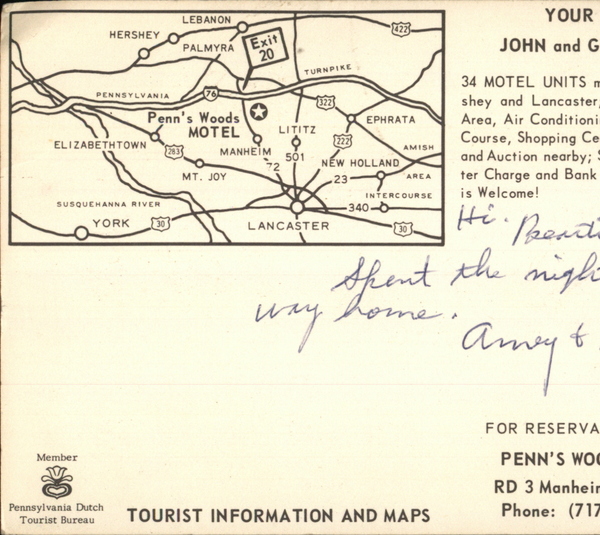 LEBANON
HERSHEY
PALMYRA
422
Exit
20
PENNSYLVANIA
76
TURNPIKE
322
Penn's Woods
MOTEL
LITITZ
EPHRATA
ELIZABETHTOWN
283
MANHEIM
222
AMISH
AREA
MT. JOY
72
501
NEW HOLLAND
23
INTERCOURSE
SUSQUEHANNA RIVER
340
YORK
30
LANCASTER
30
YOUR
JOHN and G
34 MOTEL UNITS m
shey and Lancaster,
Area, Air Conditioni
Course, Shopping Ce
and Auction nearby; S
ter Charge and Bank
is Welcome!
Hi. Beauti
Spent the nigh
way home.
Amey &
FOR RESERVA
PENN'S WOO
RD 3 Manheim
Phone: (717
Member
Pennsylvania Dutch
Tourist Bureau
TOURIST INFORMATION AND MAPS